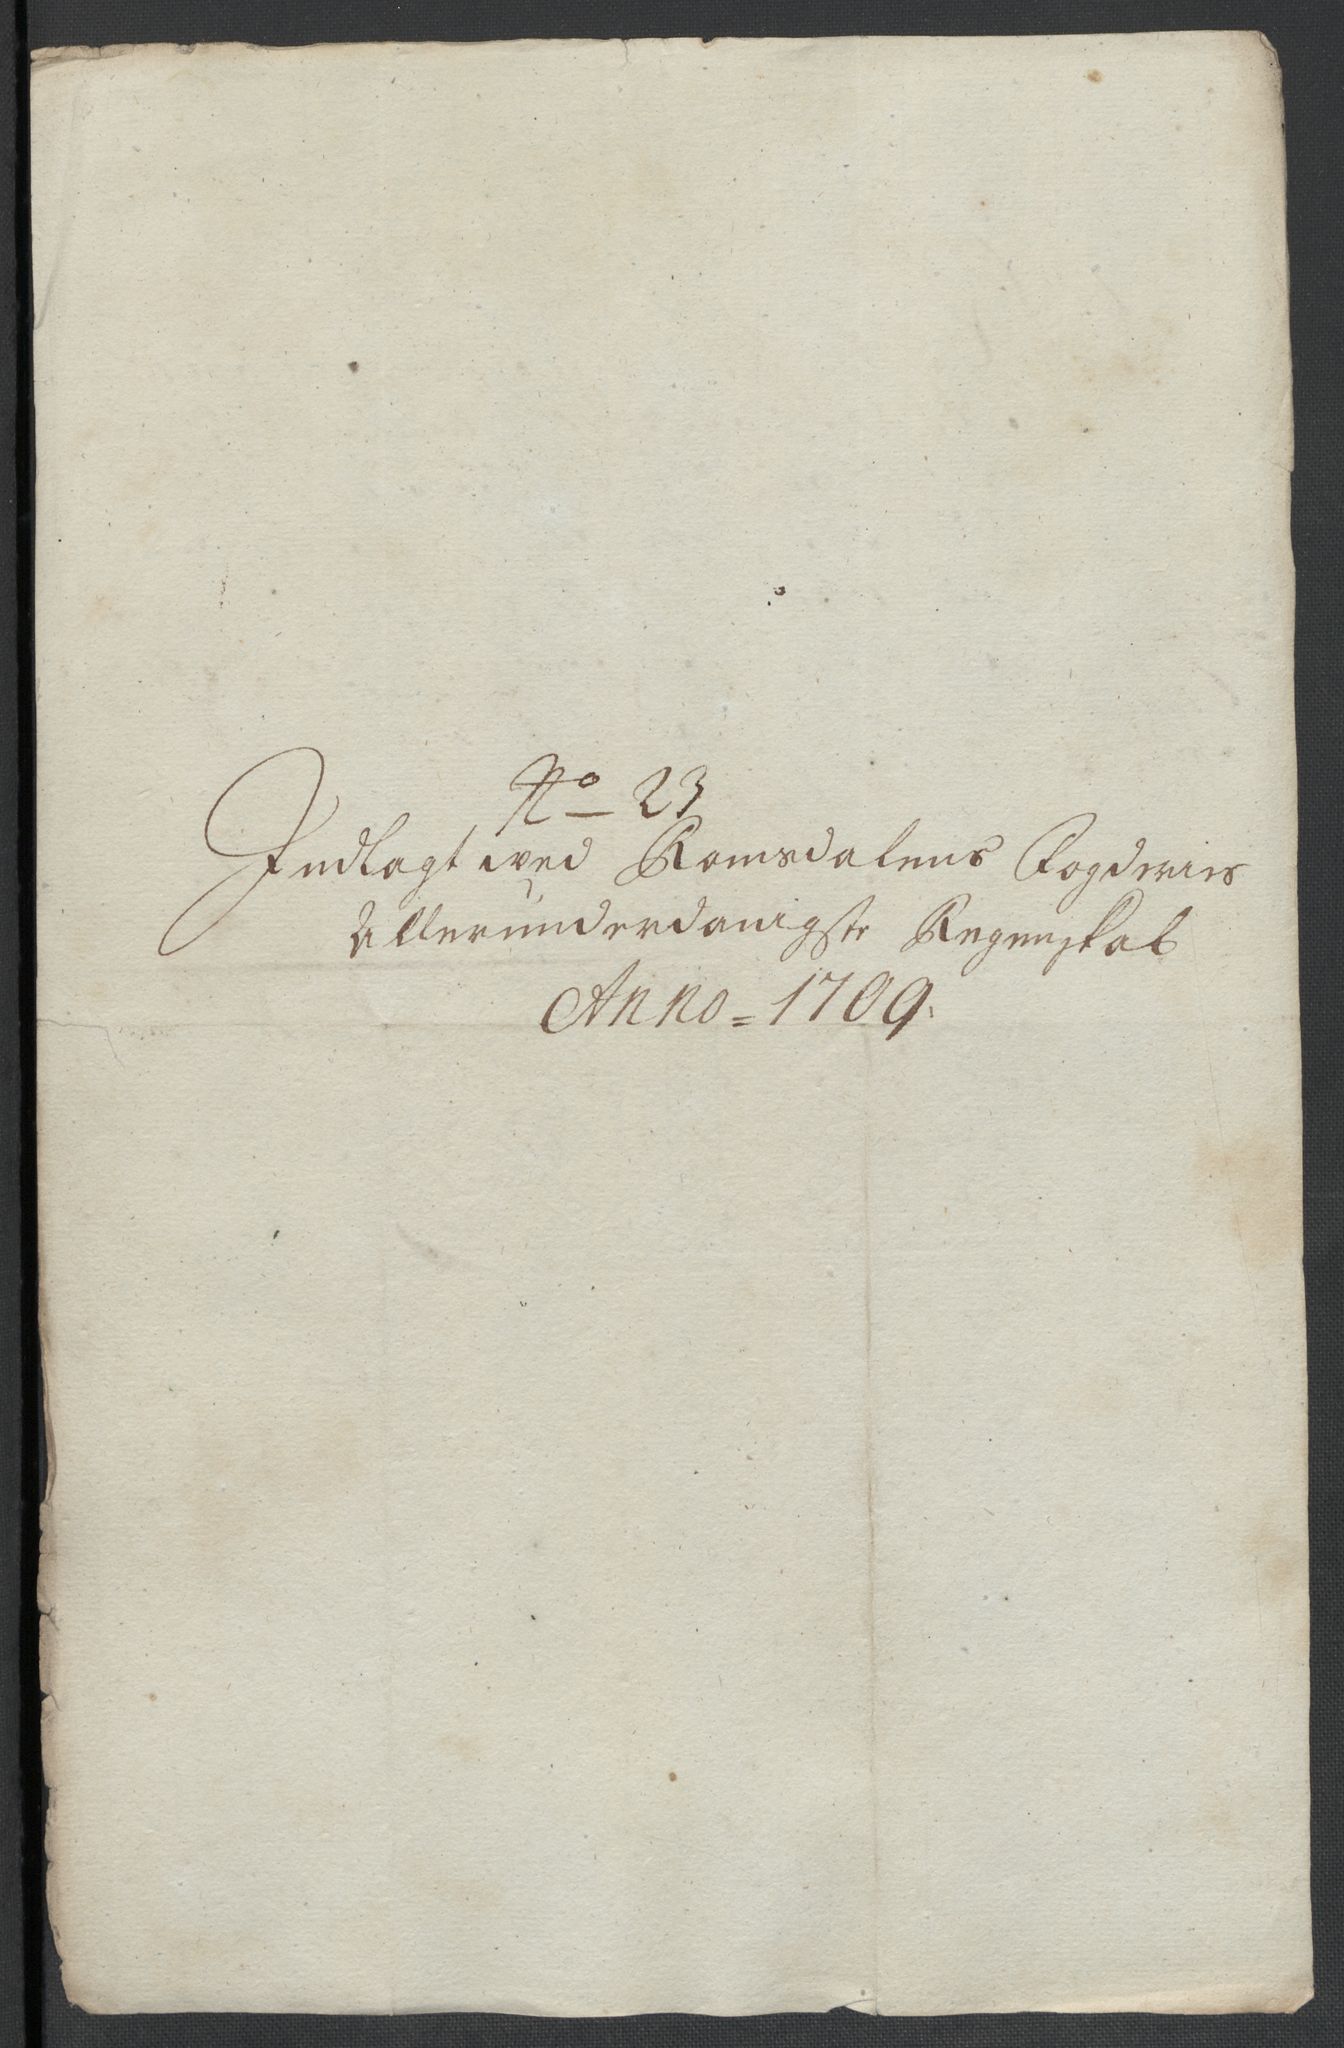 No 23
Indlagt wed Romsdalens Fogderies
Allerunderdanigste Regenskab
Anno = 1709.